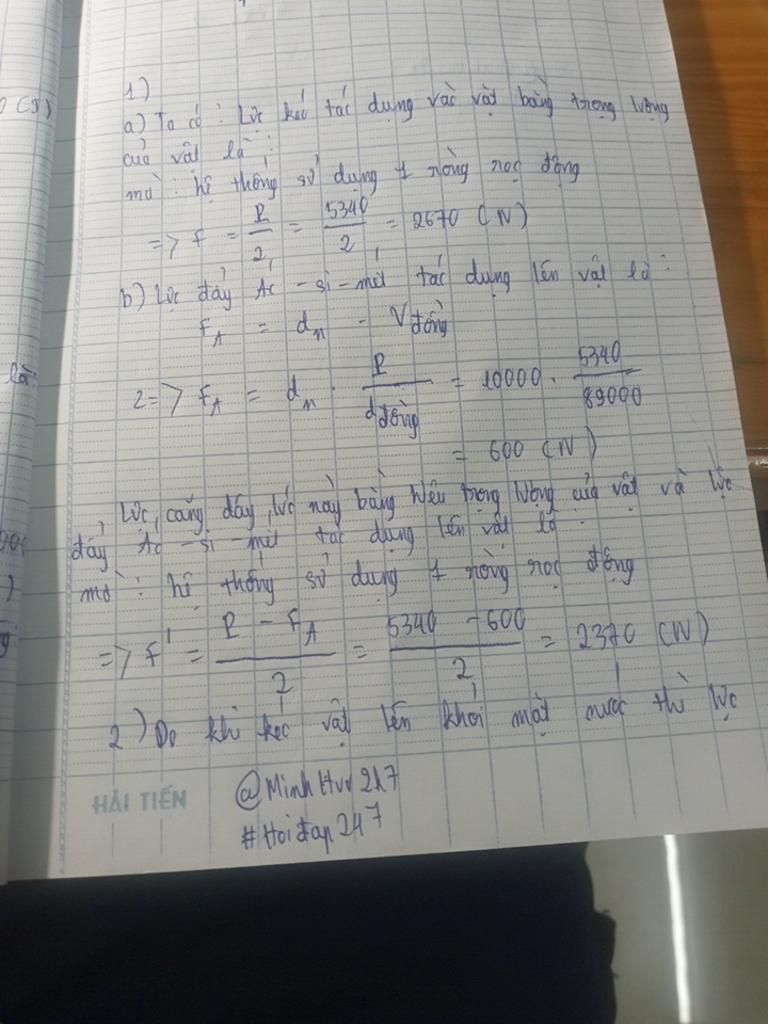 1)
a) Ta có : Lực kéo tác dụng vào vật bằng trọng lượng
của vật là :
mà : hệ thống sử dụng 1 ròng rọc động
=> F = P/2 = 5340/2 = 2670 (N)
b) Lực đẩy Ác - si - mét tác dụng lên vật là :
F_A = d_n . V đồng
2=> F_A = d_n . P/d đồng = 10000 . 5340/89000
= 600 (N)
Lực căng dây, lúc này bằng hiệu trọng lượng của vật và lực
đẩy Ác - si - mét tác dụng lên vật là :
mà : hệ thống sử dụng 1 ròng rọc động
=> F' = P - F_A/2 = 5340 - 600/2 = 2370 (N)
2) Do khi kéo vật lên khỏi mặt nước thì lực
HẢI TIẾN
@MinhHuu2k7
#Hoidap247
0 (J)
là:
)